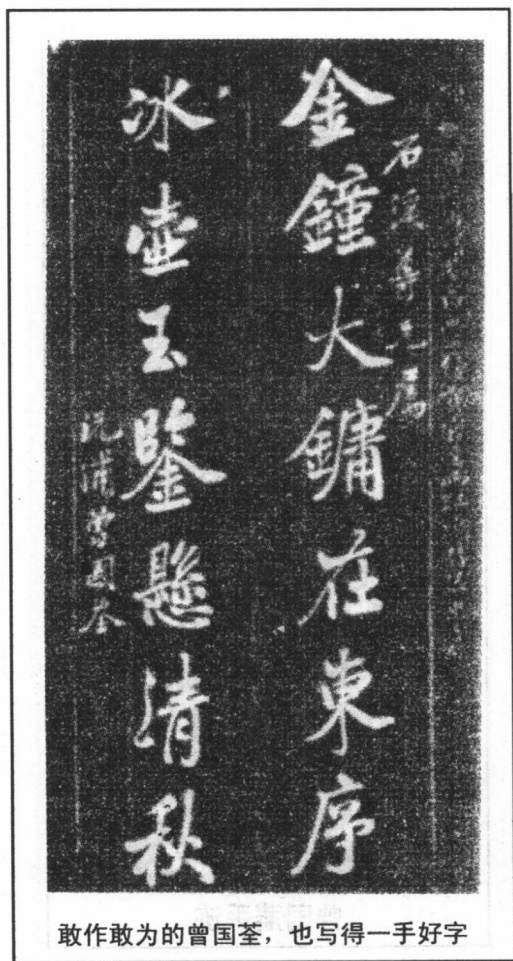 金鐘大鏞在東序
石溪尊兄属
冰壺玉鑒懸清秋
沅浦曾國荃
敢作敢为的曾国荃，也写得一手好字